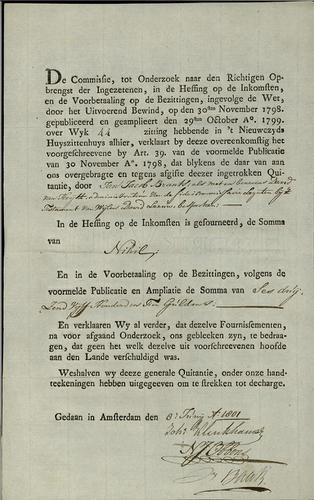 De Commissie, tot Onderzoek naar den Richtigen Op-
brengst der Ingezetenen, in de Heffing op de Inkomsten,
en de Voorbetaling op de Bezittingen, ingevolge de Wet,
door het Uitvoerend Bewind, op den 30sten November 1798.
gepubliceerd en geamplieert den 29sten October Ao. 1799.
over Wyk 44 zitting hebbende in 't Nieuwezyds
Huyszittenhuys alhier, verklaart by deeze overeenkomstig het
voorgeschreevene by Art. 39. van de voormelde Publicatie
van 30 November Ao. 1798, dat blykens de daar van aan
ons overgebragte en tegens afgifte deezer ingetrokken Qui-
tantie, door
In de Heffing op de Inkomsten is gefourneerd, de Somma
van
Nihil
En in de Voorbetaling op de Bezittingen, volgens de
voormelde Publicatie en Ampliatie de Somma van Ses duy
zend Vyff Honderd en Tien Guldens
En verklaaren Wy al verder, dat dezelve Fournissementen,
na voor afgaand Onderzoek, ons gebleeken zyn, te bedraa-
gen, dat geen het welk dezelve uit voorschreevenen hoofde
aan den Lande verschuldigd was.
Weshalven wy deeze generale Quitantie, onder onze hand-
teekeningen hebben uitgegeeven om te strekken tot decharge.
Gedaan in Amsterdam den 8 Juny Ao 1801